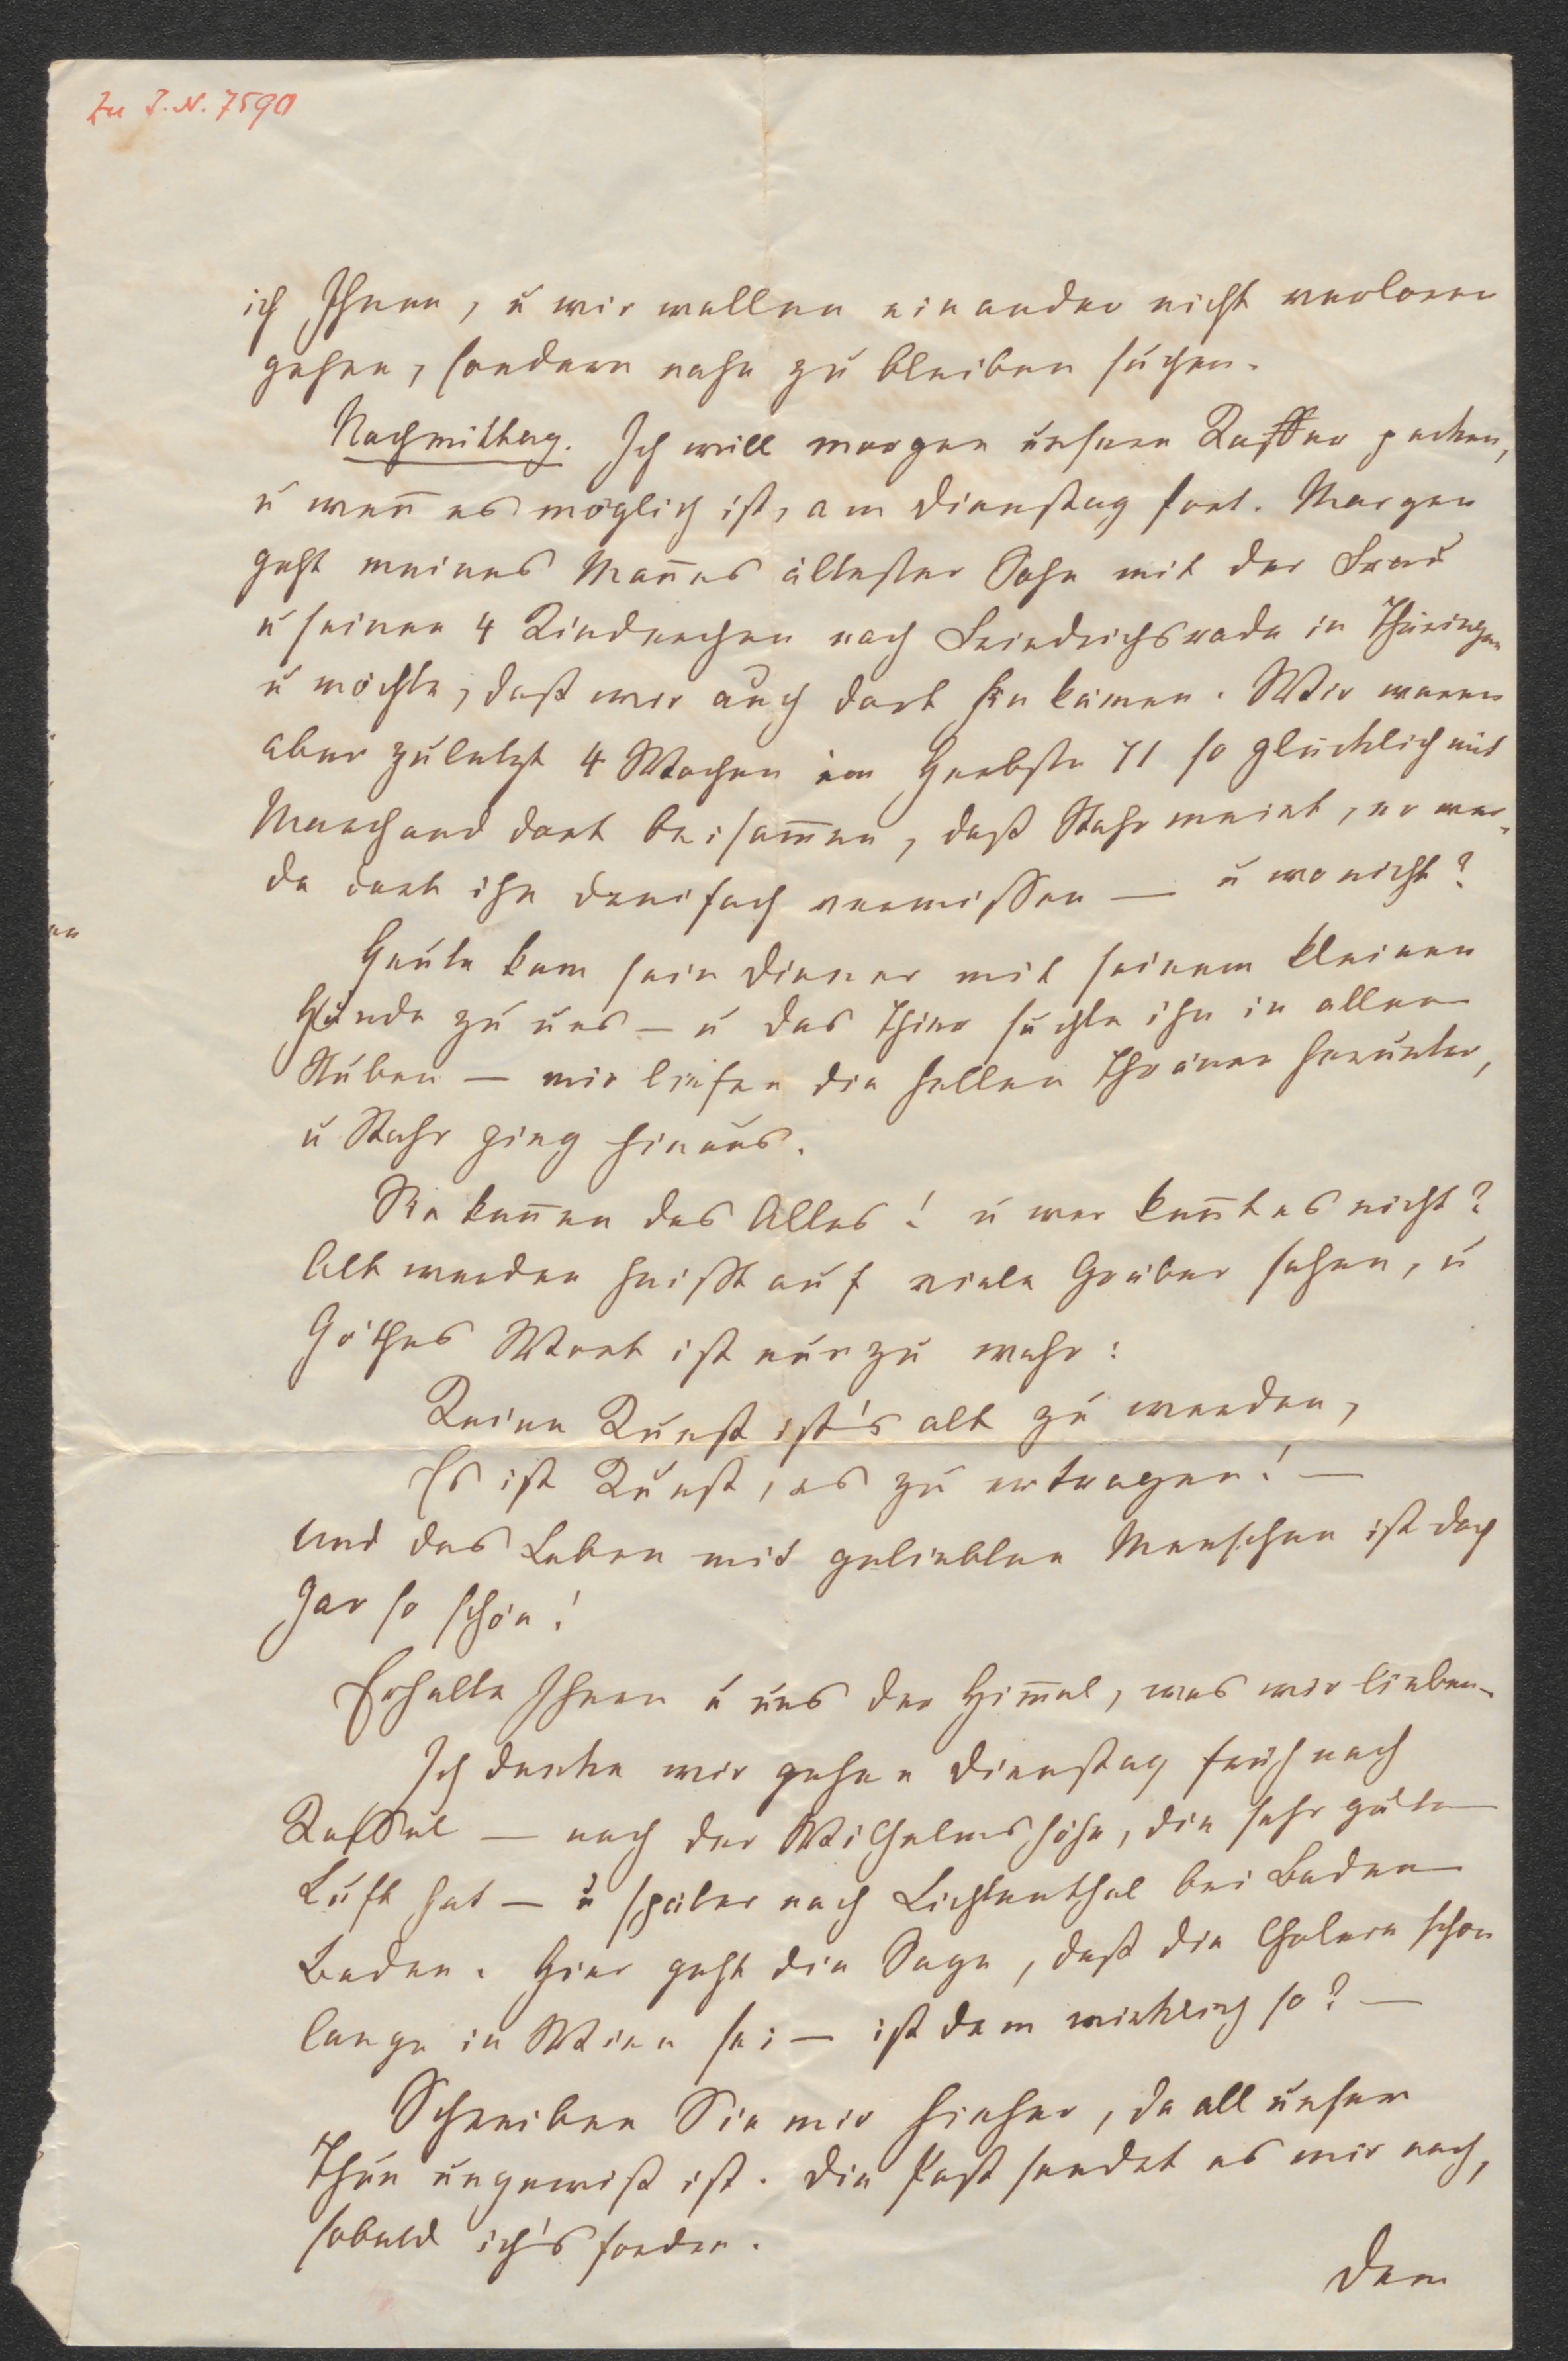 Zu I.N. 7590
ich Ihnen, u wir wollen einander nicht verloren
gehen, sondern nahe zu bleiben suchen.
Nachmittag. Ich will morgen unsern Koffer packen,
u weñ es möglich ist, am Dienstag fort. Morgen
geht meines Mañes ältester Sohn mit der Frau
u seinen 4 Kinderchen nach Friedrichsroda in Thüringen
u möchte, daß wir auch dort hin kämen. Wir waren
aber zuletzt 4 Wochen im Herbste 71 so glücklich mit
dort beisam̃en, daß Stahr meint, er wer-
de dort ihn dreifach vermissen — u wo nicht?
Heute kam sein Diener mit seinem kleinen
Hunde zu uns — u das Thier suchte ihn in allen
Stuben — mir liefen die hellen Thränen herunter,
u Stahr ging hinaus.
Sie keñen das Alles! u wer keñt es nicht?
Alt werden heißt auf viele Gräber sehen, u
Göthes Wort ist nur zu wahr:
Keine Kunst ist's alt zu werden,
Es ist Kunst, es zu ertragen! —
Und das Leben mit geliebten Menschen ist doch
gar so schön!
Erhalte Ihnen u uns der Him̃el, was wir lieben.
Ich denke wir gehen Dienstag früh nach
Kassel — nach der Wilhelmshöhe, die sehr gute
Luft hat — u später nach Lichtenthal bei Baden
Baden. Hier geht die Sage, daß die Cholera schon
lange in Wien sei — ist dem wirklich so? —
Schreiben Sie mir hieher, da all unser
Thun ungewiß ist. Die Post sendet es mir nach,
sobald ich's fordre.
Dem